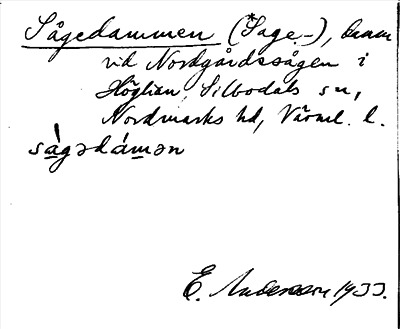 Sågedammen (*Sage-), damm
vid Nordgårdssågen i
Höglian, Silbodals sn,
Nordmarks hd, Värml. l.
ság̲ədám̲ən
E. Andersson 1933.